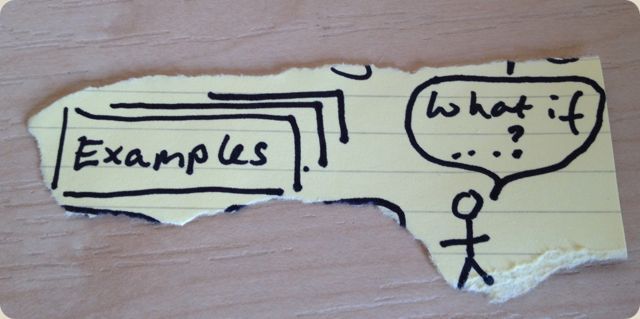 Examples
What if
....?